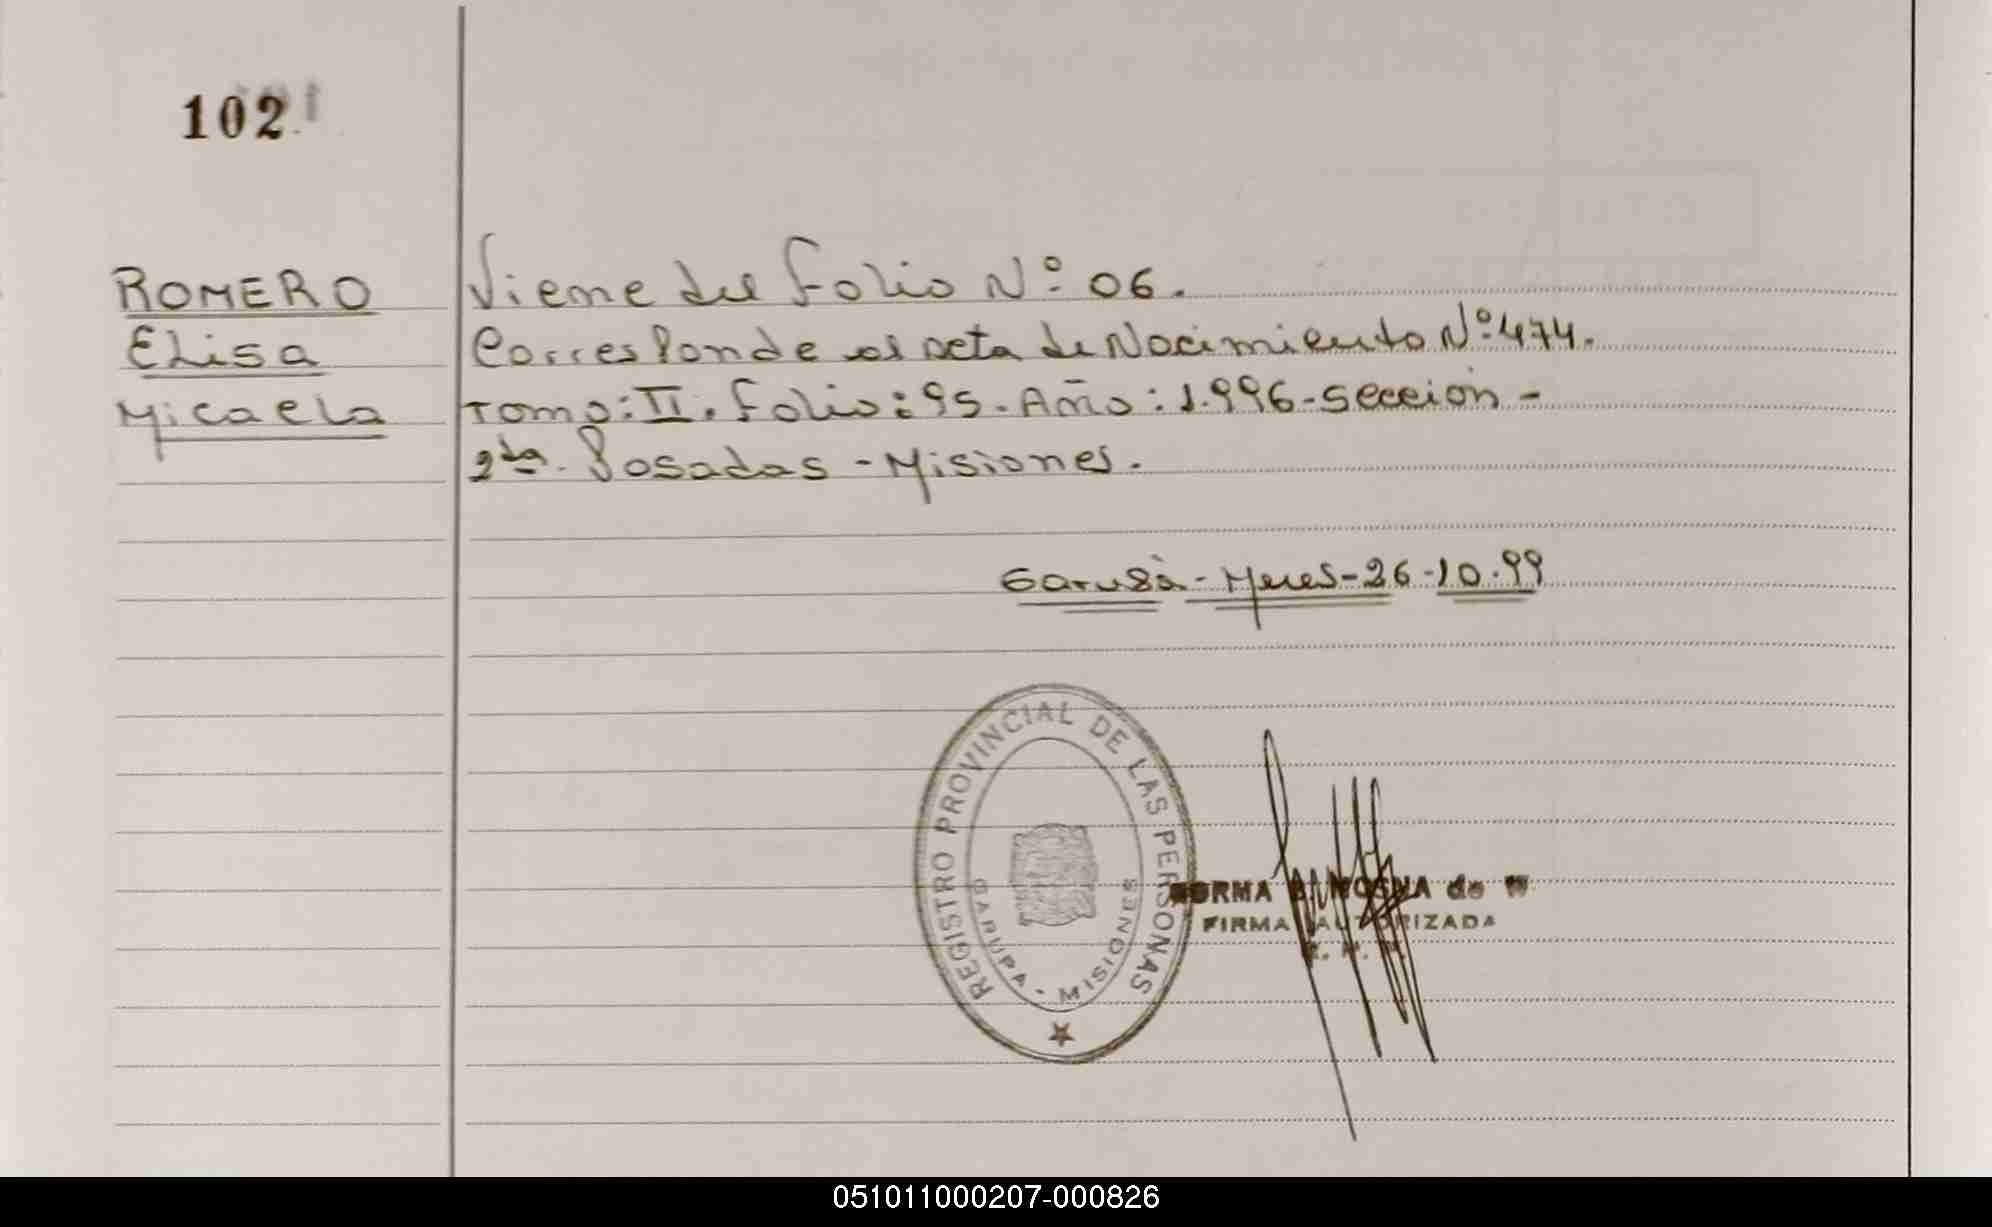 102
ROMERO
Elisa
Micaela
Viene del Folio Nº 06.
Corresponde al acta de Nacimiento Nº 474.
Tomo: II. Folio: 95. Año: 1.996 - Sección -
2da. Posadas - Misiones.
Garupá - Mnes - 26-10-99
REGISTRO PROVINCIAL DE LAS PERSONAS
GARUPA - MISIONES
NORMA de
FIRMA AUTORIZADA
051011000207-000826